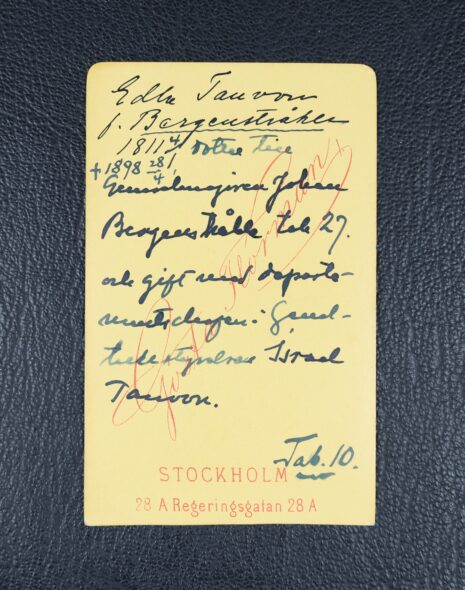 Edla Tauvon
f. Bergenstråhle
1811 4/ dotter till
+ 1898 28/4
Johan
Bergenstråhle tab 27.
och gift med departe-
i Sund-
Israel
Tauvon.
Tab. 10.
Gösta Florman
STOCKHOLM
28 A Regeringsgatan 28 A